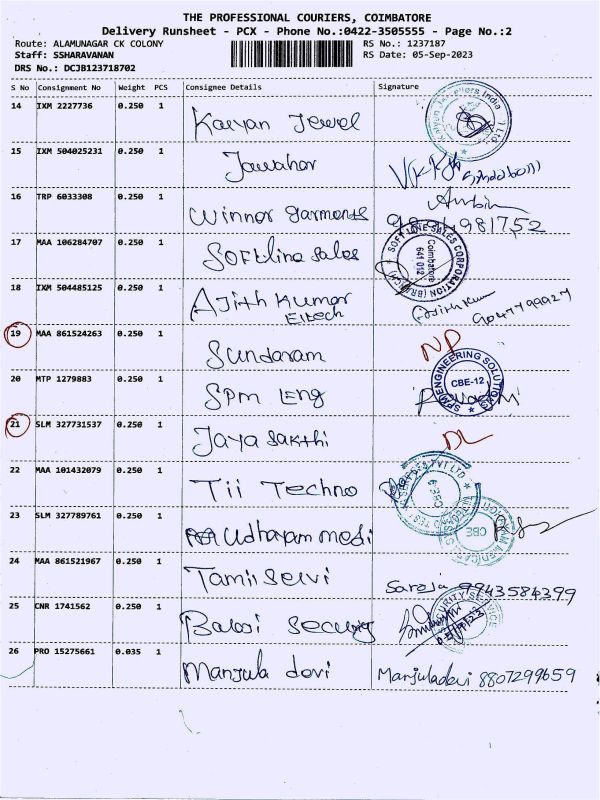 THE PROFESSIONAL COURIERS, COIMBATORE
Delivery Runsheet - PCX - Phone No.:0422-3505555 - Page No.:2
Route: ALAMUNAGAR CK COLONY
RS No.: 1237187
Staff: SSHARAVANAN
RS Date: 05-Sep-2023
DRS No.: DCJB123718702
S No Consignment No Weight PCS Consignee Details Signature
14 IXM 2227736 0.250 1 Kalyan Jewel
15 IXM 504025231 0.250 1 Jawahar
16 TRP 6033308 0.250 1 Winner garments
17 MAA 106284707 0.250 1 Softline Sales SOFTLINE SALES CORPORATION Coimbatore 641 012
18 IXM 504485125 0.250 1 Ajith Kumar
Eltech 9047799927
19 MAA 861524263 0.250 1 Sundaram NP
20 MTP 1279883 0.250 1 SPM Eng SPM ENGINEERING SOLUTIONS CBE-12
21 SLM 327731537 0.250 1 Jaya Sakthi DL
22 MAA 101432079 0.250 1 Tii Techno
23 SLM 327789761 0.250 1 Udhayam medi CBE
24 MAA 861521967 0.250 1 Tamil Selvi Saroja 9943584399
25 CNR 1741562 0.250 1 Balaji Security
26 PRO 15275661 0.035 1 Manjula devi Manjuladevi 8807299659